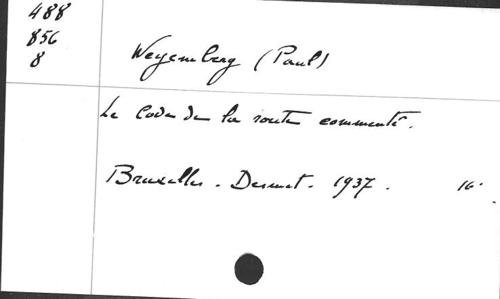 488
856
8
Weyemberg (Paul)
Le Code de la route commenté.
Bruxelles. Desmet. 1937. 16°.